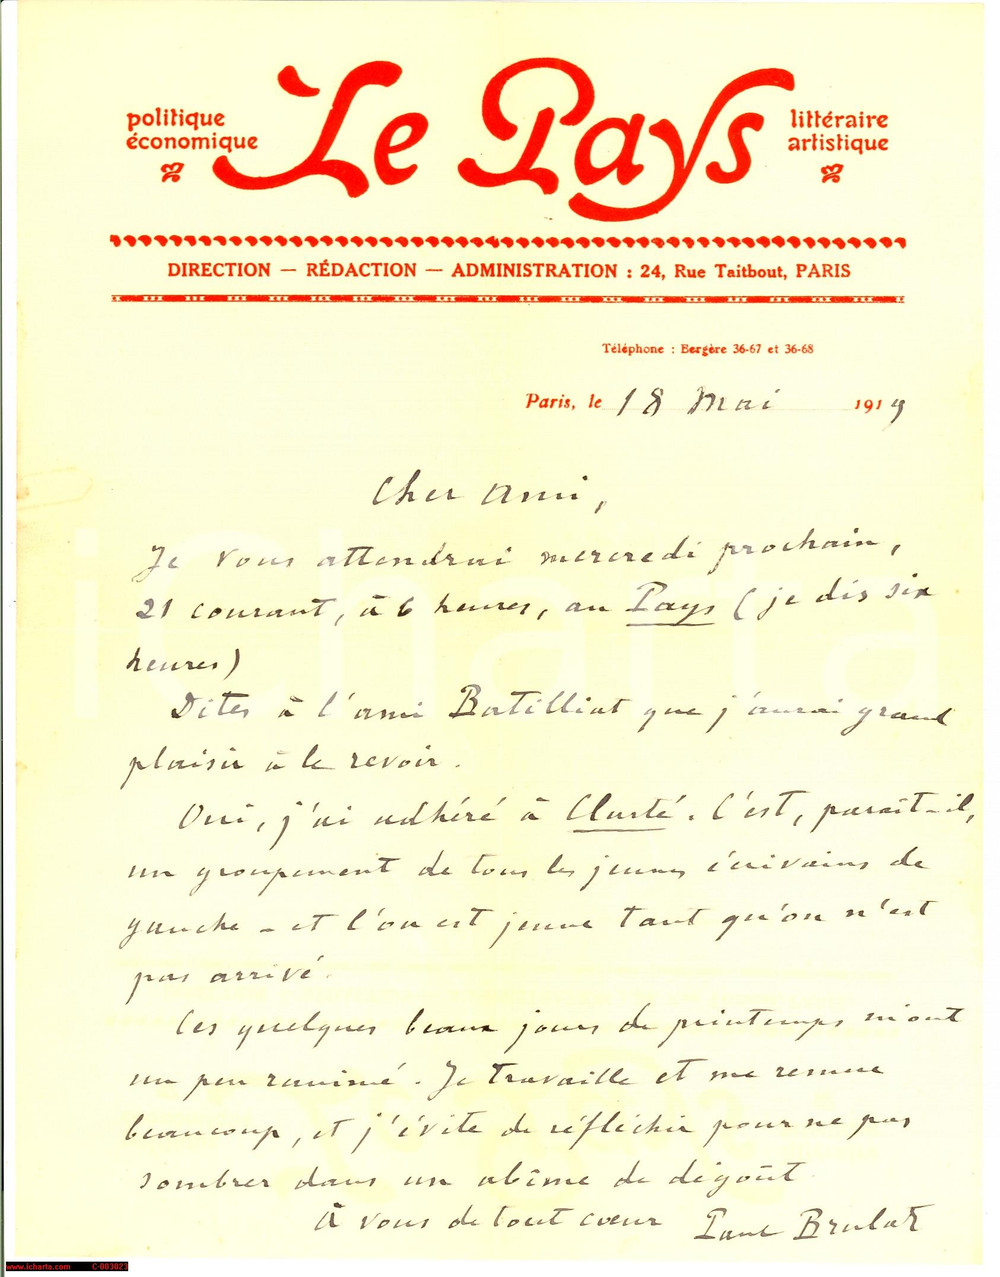 politique
économique
Le Pays
littéraire
artistique
DIRECTION — RÉDACTION — ADMINISTRATION : 24, Rue Taitbout, PARIS
Téléphone : Bergère 36-67 et 36-68
Paris, le 18 Mai 1919
Cher Ami,
Je vous attendrai mercredi prochain,
21 courant, à 6 heures, au Pays (je dis six
heures)
Dites à l'ami Batilliat que j'aurai grand
plaisir à le revoir.
Oui, j'ai adhéré à Clarté. C'est, paraît-il,
un groupement de tous les jeunes écrivains de
gauche - et l'on est jeune tant qu'on n'est
pas arrivé.
Ces quelques beaux jours de printemps m'ont
un peu ranimé. Je travaille et me remue
beaucoup, et j'évite de réfléchir pour ne pas
sombrer dans un abîme de dégoût
À vous de tout cœur Paul Brulat
iCharta
www.icharta.com C-003023